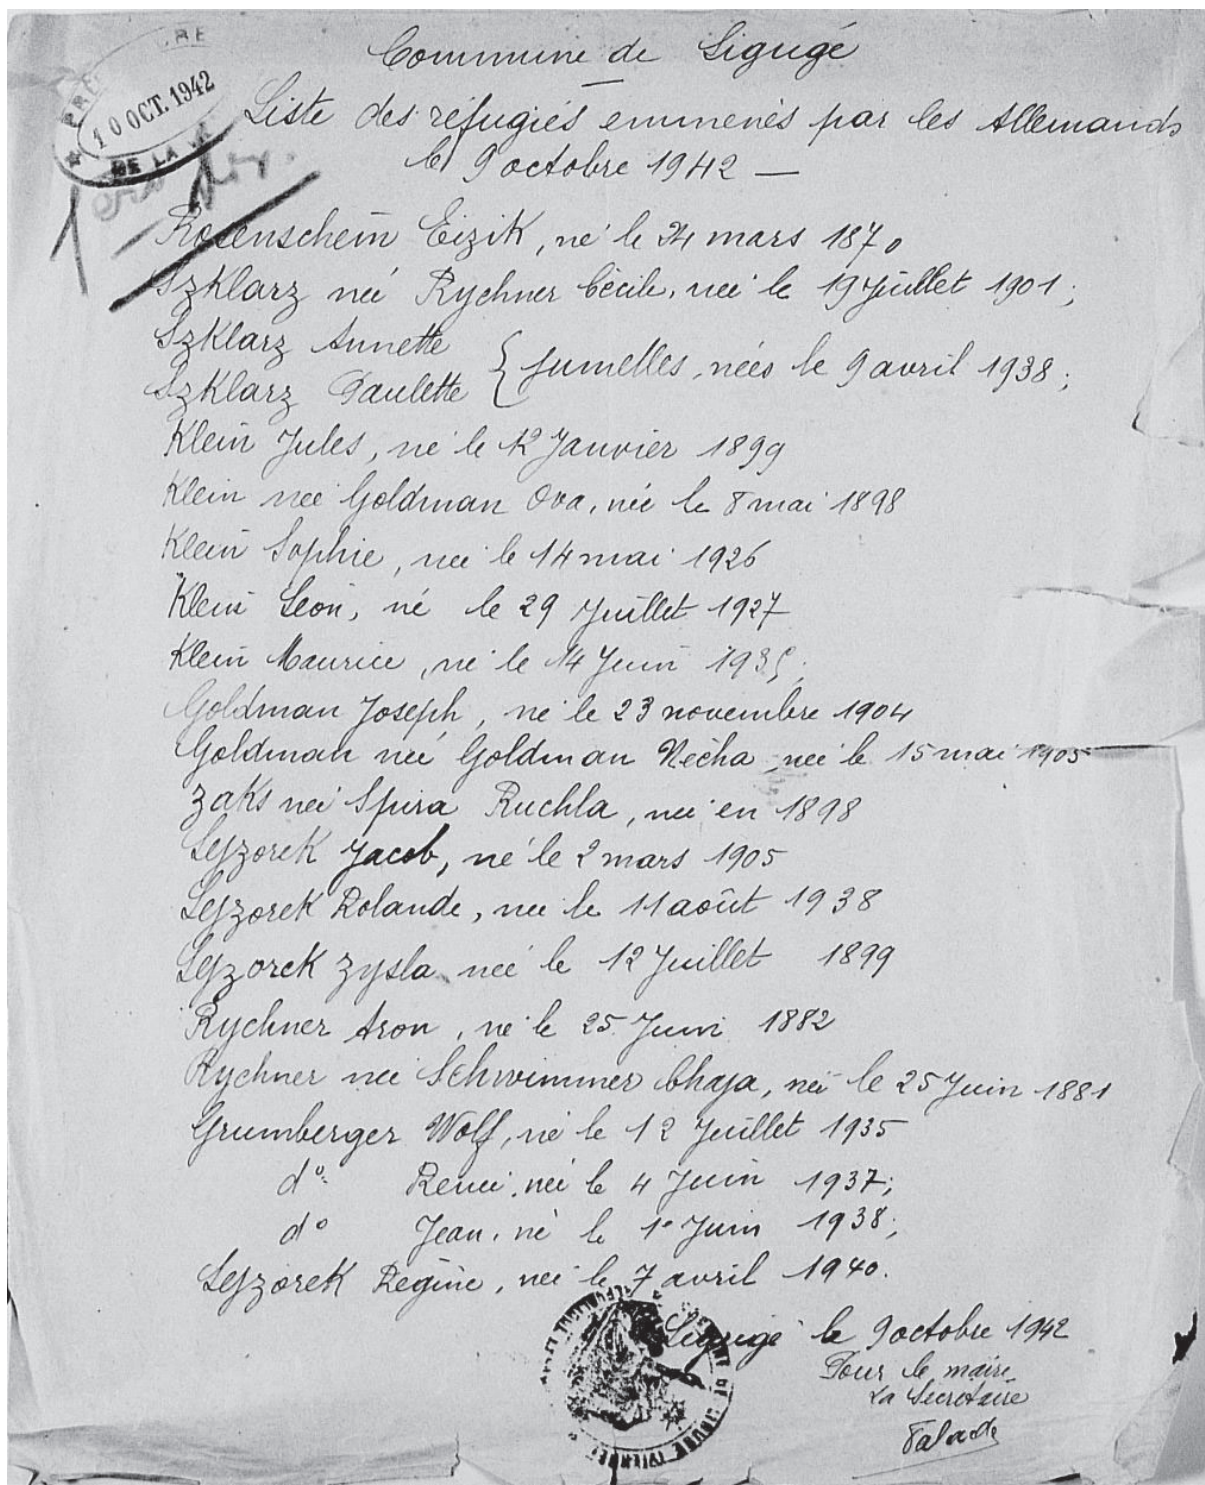 Commune de Ligugé
PRÉ
10 OCT. 1942
DE LA
Liste des réfugiés emmenés par les Allemands
le 9 octobre 1942 —
Rosenschein Eizik, né le 24 mars 1870
Szklarz née Rychner Cécile, née le 19 Juillet 1901;
Szklarz Annette
Szklarz Paulette { jumelles, nées le 9 avril 1938;
Klein Jules, né le 12 Janvier 1899
Klein née Goldman Ova, née le 8 mai 1898
Klein Sophie, née le 14 mai 1926
Klein Léon, né le 29 Juillet 1927
Klein Maurice, né le 14 Juin
Goldman Joseph, né le 23 novembre 1904
Goldman née Goldman Nécha, née le 15 mai 1905
Zaks née Spira Ruchla, née en 1898
Lejzorek Jacob, né le 2 mars 1905
Lejzorek Rolande, née le 11 août 1938
Lejzorek Zysla née le 12 Juillet 1899
Rychner Aron, né le 25 Juin 1882
Rychner née Schwimmer Chaja, née le 25 Juin 1881
Grumberger Wolf, né le 12 Juillet 1935
d° Renée, née le 4 Juin 1937;
d° Jean, né le 1° Juin 1938;
Lejzorek Régine, née le 7 avril 1940.
Ligugé le 9 octobre 1942
Pour le maire
La Secrétaire